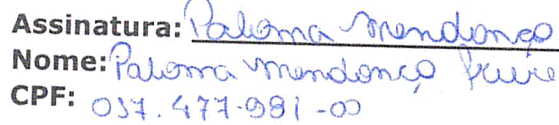 Assinatura: Paloma Mendonça
Nome: Paloma Mendonça Freire
CPF: 057.477.981-00